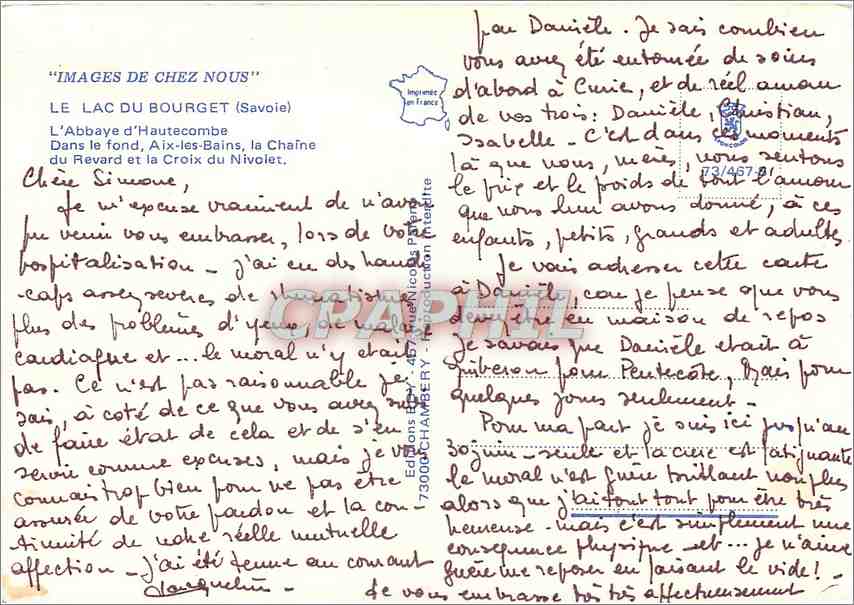 "IMAGES DE CHEZ NOUS"
LE LAC DU BOURGET (Savoie)
L'Abbaye d'Hautecombe
Dans le fond, Aix-les-Bains, la Chaîne
du Revard et la Croix du Nivolet.
Imprimée
en France
Editions EDY - 457, rue Nicolas Parent
73000 CHAMBERY - Reproduction interdite
73/467-
CPAPHIL
Chère Simone,
Je m'excuse vraiment de n'avoir
pu venir vous embrasser, lors de votre
hospitalisation - j'ai eu des handi
-caps assez sévères de rhumatisme
plus des problèmes d'yeux de malaise
cardiaque et ... le moral n'y était
pas. Ce n'est pas raisonnable je
sais, à côté de ce que vous avez
de faire état de cela et de s'en
servir comme excuses, mais je vous
connais trop bien pour ne pas être
assurée de votre pardon et la con-
tinuité de notre réelle mutuelle
affection - j'ai été tenue au courant
par Danièle. Je sais combien
vous avez été entourée de soins
d'abord à Curie, et de réel amour
de vos trois : Danièle, Christian,
Isabelle - C'est dans ces moments
là que nous, mères, nous sentons
le prix et le poids de tout l'amour
que nous leur avons donné, à ces
enfants, petits, grands et adultes
Je vais adresser cette carte
à Danièle, car je pense que vous
devez être en maison de repos
je savais que Danièle était à
Quiberon pour Pentecôte, mais pour
quelques jours seulement.
Pour ma part je suis ici jusqu'au
30 juin - seule et la cure est fatigante
le moral n'est guère brillant non plus
alors que j'ai tout tout pour être très
heureuse - mais c'est simplement une
conséquence physique - et ... je n'aime
guère me reposer en faisant le vide !
Je vous embrasse très très affectueusement
Jacqueline -